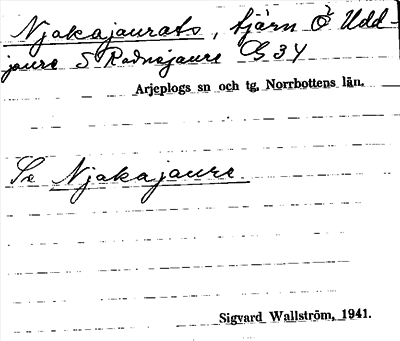 Njakajaurats, tjärn Ö Udd-
jaure S Radnejaure G 34
Arjeplogs sn och tg, Norrbottens län.
Se Njakajaure.
Sigvard Wallström, 1941.